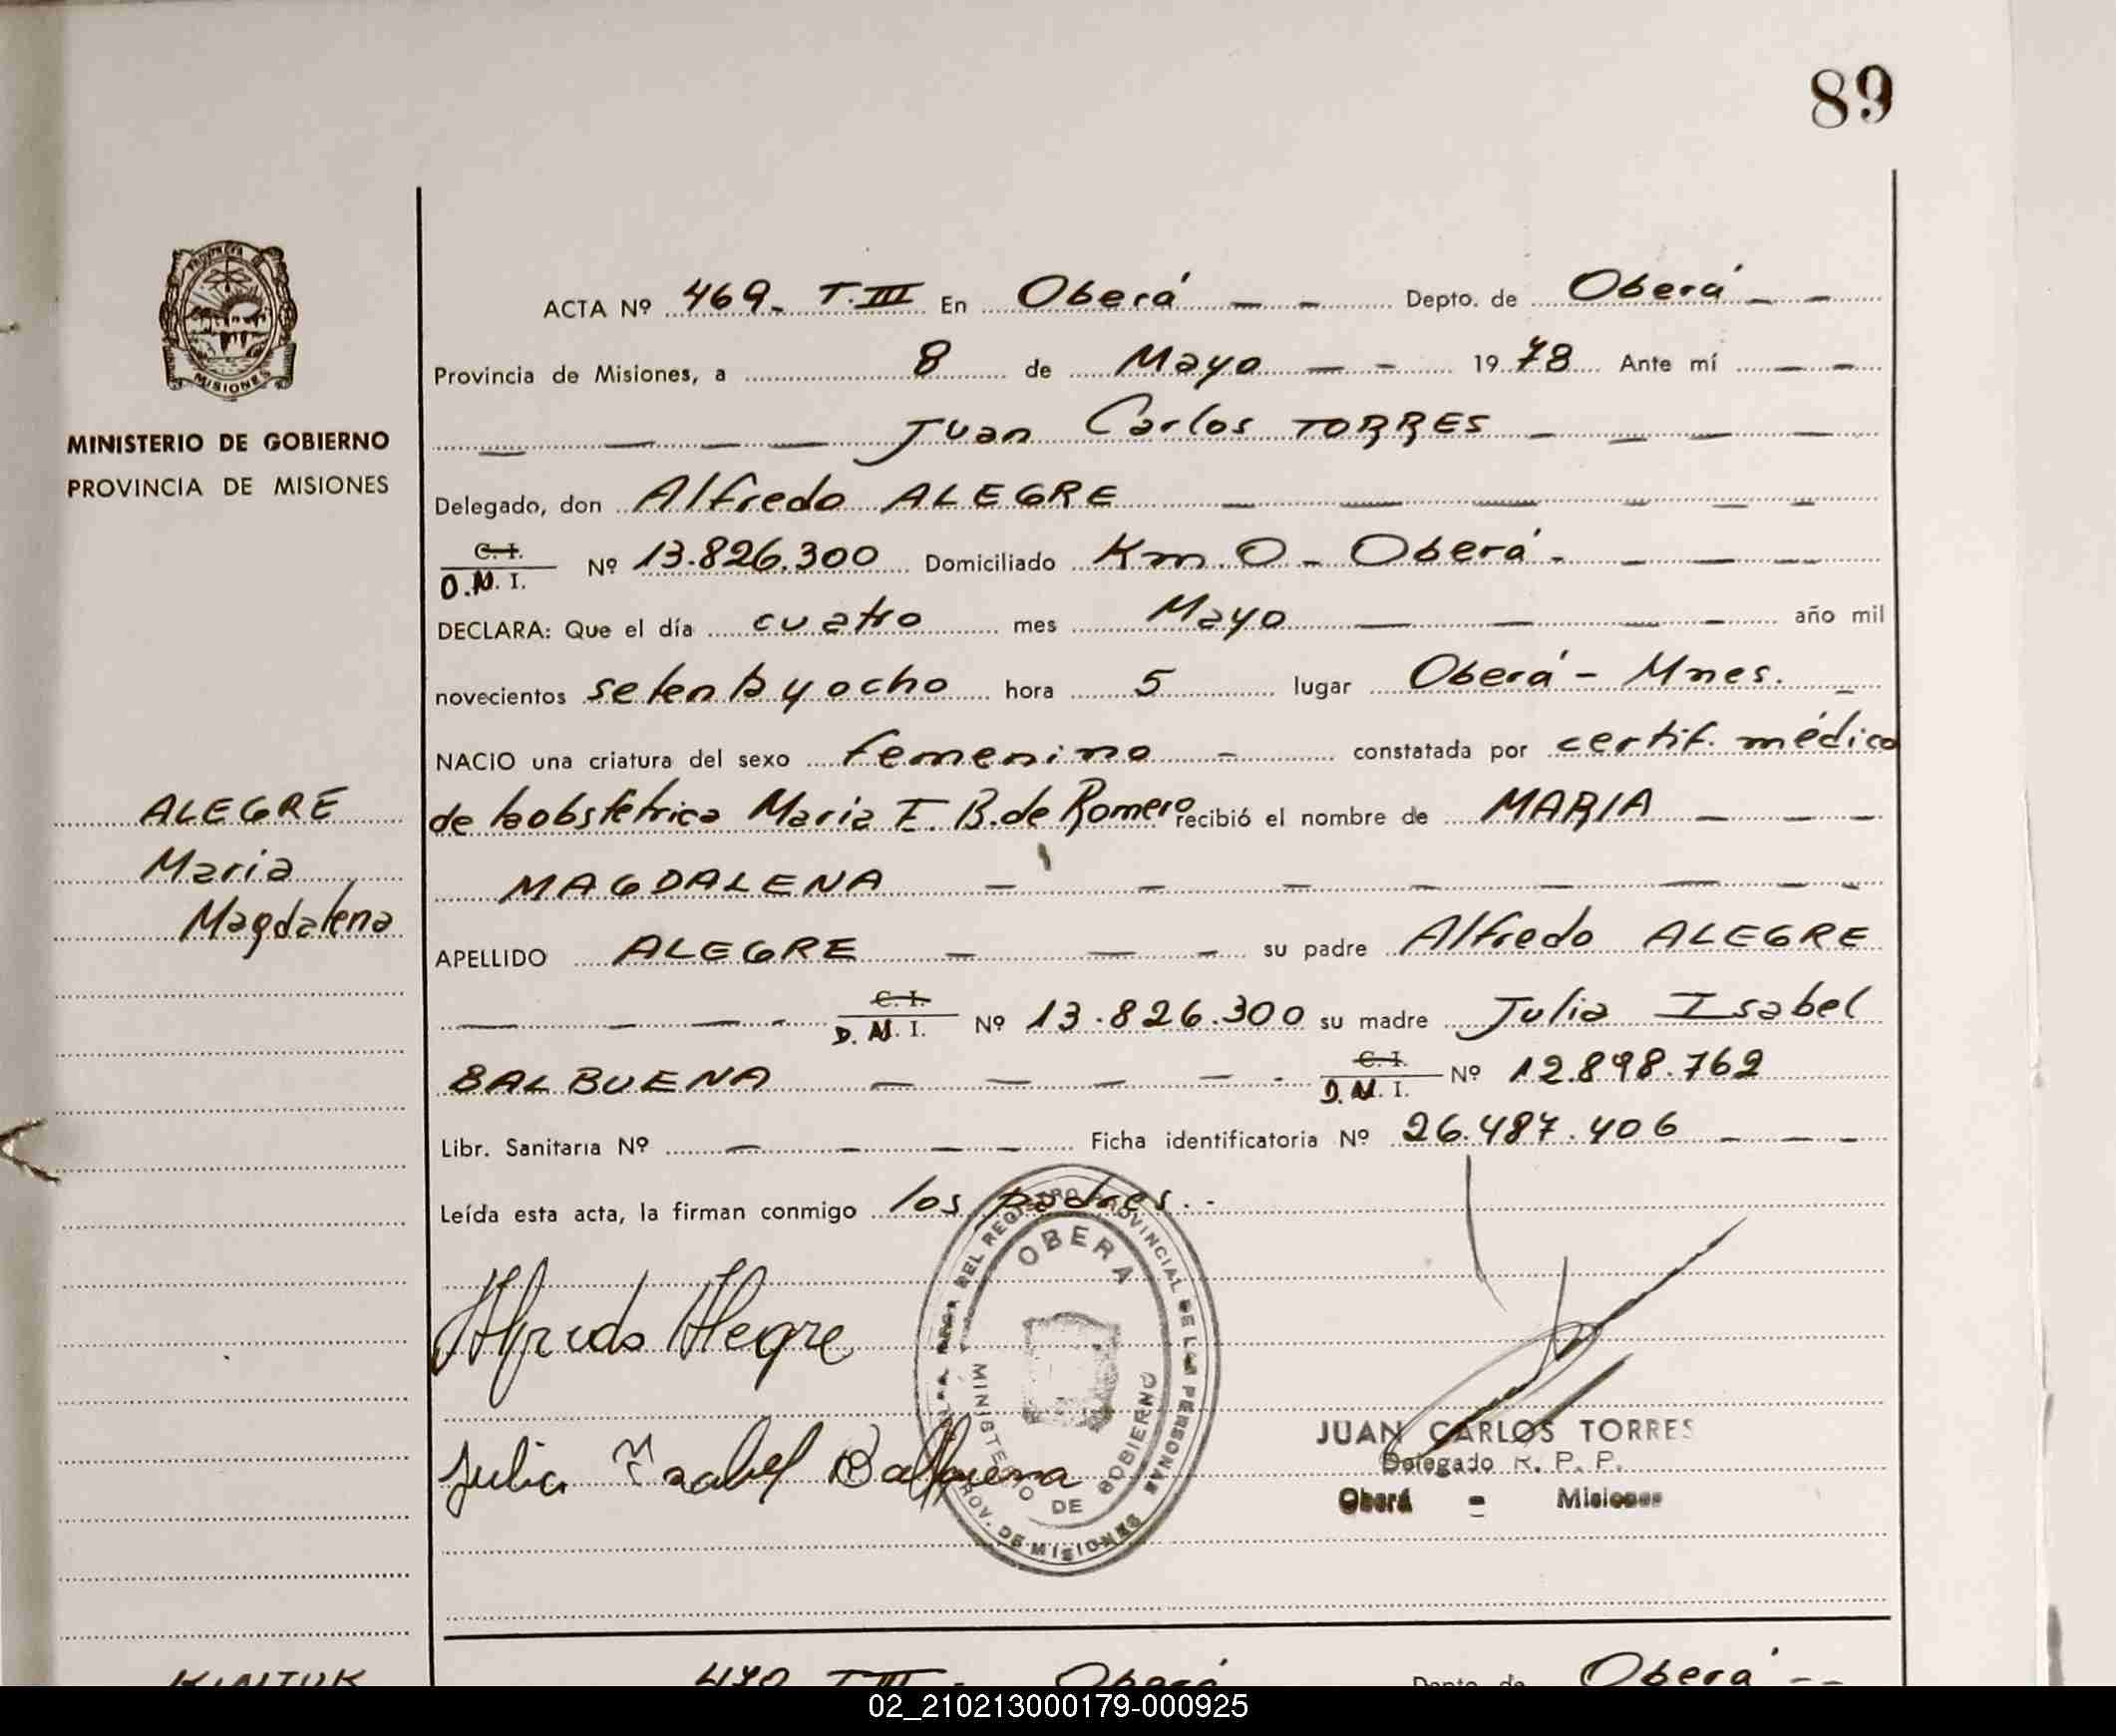 89
PROVINCIA DE
MISIONES
MINISTERIO DE GOBIERNO
PROVINCIA DE MISIONES
ALEGRE
Maria
Magdalena
ACTA Nº 469- T.III En Oberá — — Depto. de Oberá — —
Provincia de Misiones, a 8 de Mayo — — 1978 Ante mí — —
— — — Juan Carlos TORRES — — — —
Delegado, don Alfredo ALEGRE — — — — — — —
C.I.
D.N.I. Nº 13.826.300 Domiciliado Km. 0 - Oberá - — — —
DECLARA: Que el día cuatro mes Mayo — — — — año mil
novecientos setenta y ocho hora 5 lugar Oberá - Mnes. —
NACIO una criatura del sexo femenino — constatada por certif. médico
de la obstetrica Maria E. B. de Romero recibió el nombre de MARIA — — —
MAGDALENA — — — — — — — —
APELLIDO ALEGRE — — — su padre Alfredo ALEGRE
— — — C. I.
D. N. I. Nº 13.826.300 su madre Julia Isabel
BALBUENA — — — — - C.I.
D. N. I. Nº 12.898.762
Libr. Sanitaria Nº — — — — Ficha identificatoria Nº 26.487.406 — — —
Leída esta acta, la firman conmigo los padres. -
Alfredo Alegre
Julia Ysabel Balbuena
DEL REGISTRO PROVINCIAL DE LAS PERSONAS
OBERA
MINISTERIO DE GOBIERNO
PROV. DE MISIONES
JUAN CARLOS TORRES
Delegado R. P. P.
Oberá - Misiones
470 T III - Oberá Depto de Oberá - -
02_210213000179-000925